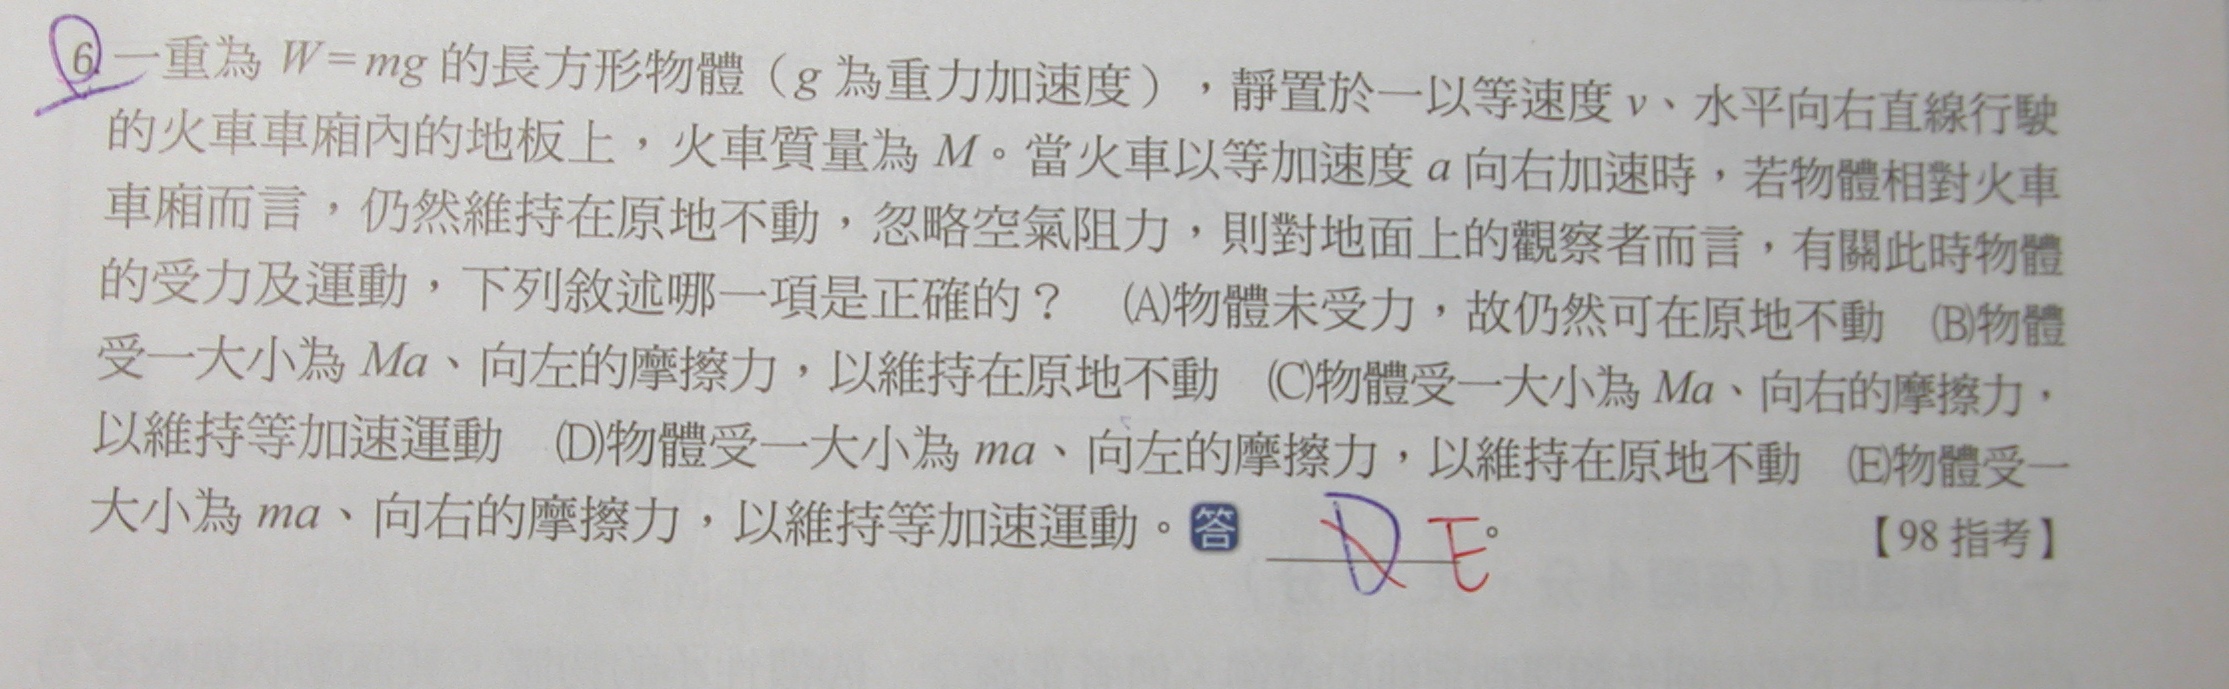 6.一重為 W=mg 的長方形物體（g 為重力加速度），靜置於一以等速度 v、水平向右直線行駛
的火車車廂內的地板上，火車質量為 M。當火車以等加速度 a 向右加速時，若物體相對火車
車廂而言，仍然維持在原地不動，忽略空氣阻力，則對地面上的觀察者而言，有關此時物體
的受力及運動，下列敘述哪一項是正確的？　(A)物體未受力，故仍然可在原地不動　(B)物體
受一大小為 Ma、向左的摩擦力，以維持在原地不動　(C)物體受一大小為 Ma、向右的摩擦力，
以維持等加速運動　(D)物體受一大小為 ma、向左的摩擦力，以維持在原地不動　(E)物體受一
大小為 ma、向右的摩擦力，以維持等加速運動。答 D E。【98 指考】